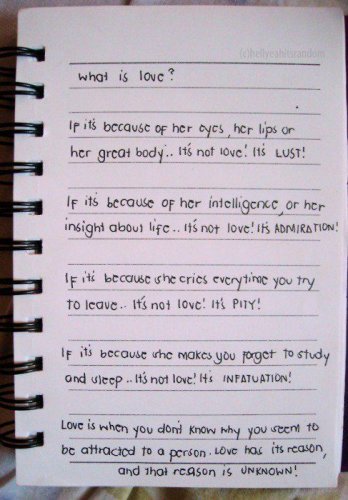 (c)hellyeahitsrandom
What is love?
If it's because of her eyes, her lips or
her great body.. It's not love! It's LUST!
If it's because of her intelligence, or her
insight about life.. It's not love! It's ADMIRATION!
If it's because she cries everytime you try
to leave.. It's not love! It's PITY!
If it's because she makes you forget to study
and sleep.. It's not love! It's INFATUATION!
Love is when you don't know why you seem to
be attracted to a person. Love has its reason,
and that reason is UNKNOWN!